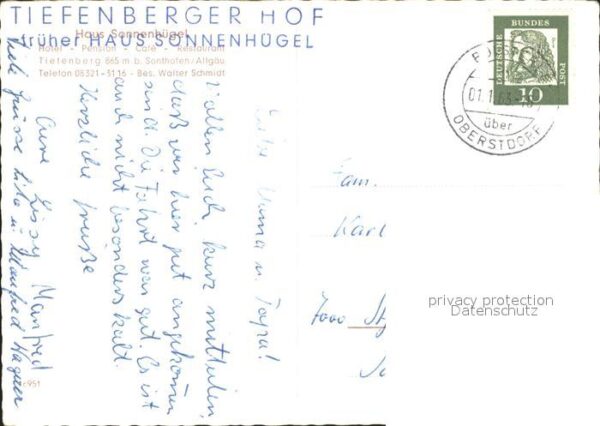 TIEFENBERGER HOF
früher HAUS SONNENHÜGEL
Haus Sonnenhügel
Hotel - Pension - Café - Restaurant
Tiefenberg 865 m b. Sonthofen/Allgäu
Telefon 08321-5116 - Bes. Walter Schmidt
Liebe Mama u. Papa!
wollen Euch kurz mitteilen,
daß wir hier gut angekommen
sind. Die Fahrt war gut. Es ist
auch nicht besonders kalt.
Herzliche Grüße
Manfred
viele Grüße
Manfred Wagner
c951
DEUTSCHE
BUNDES
POST
10
01.1
über
OBERSTDORF
Fam.
Karl
7000
privacy protection
Datenschutz